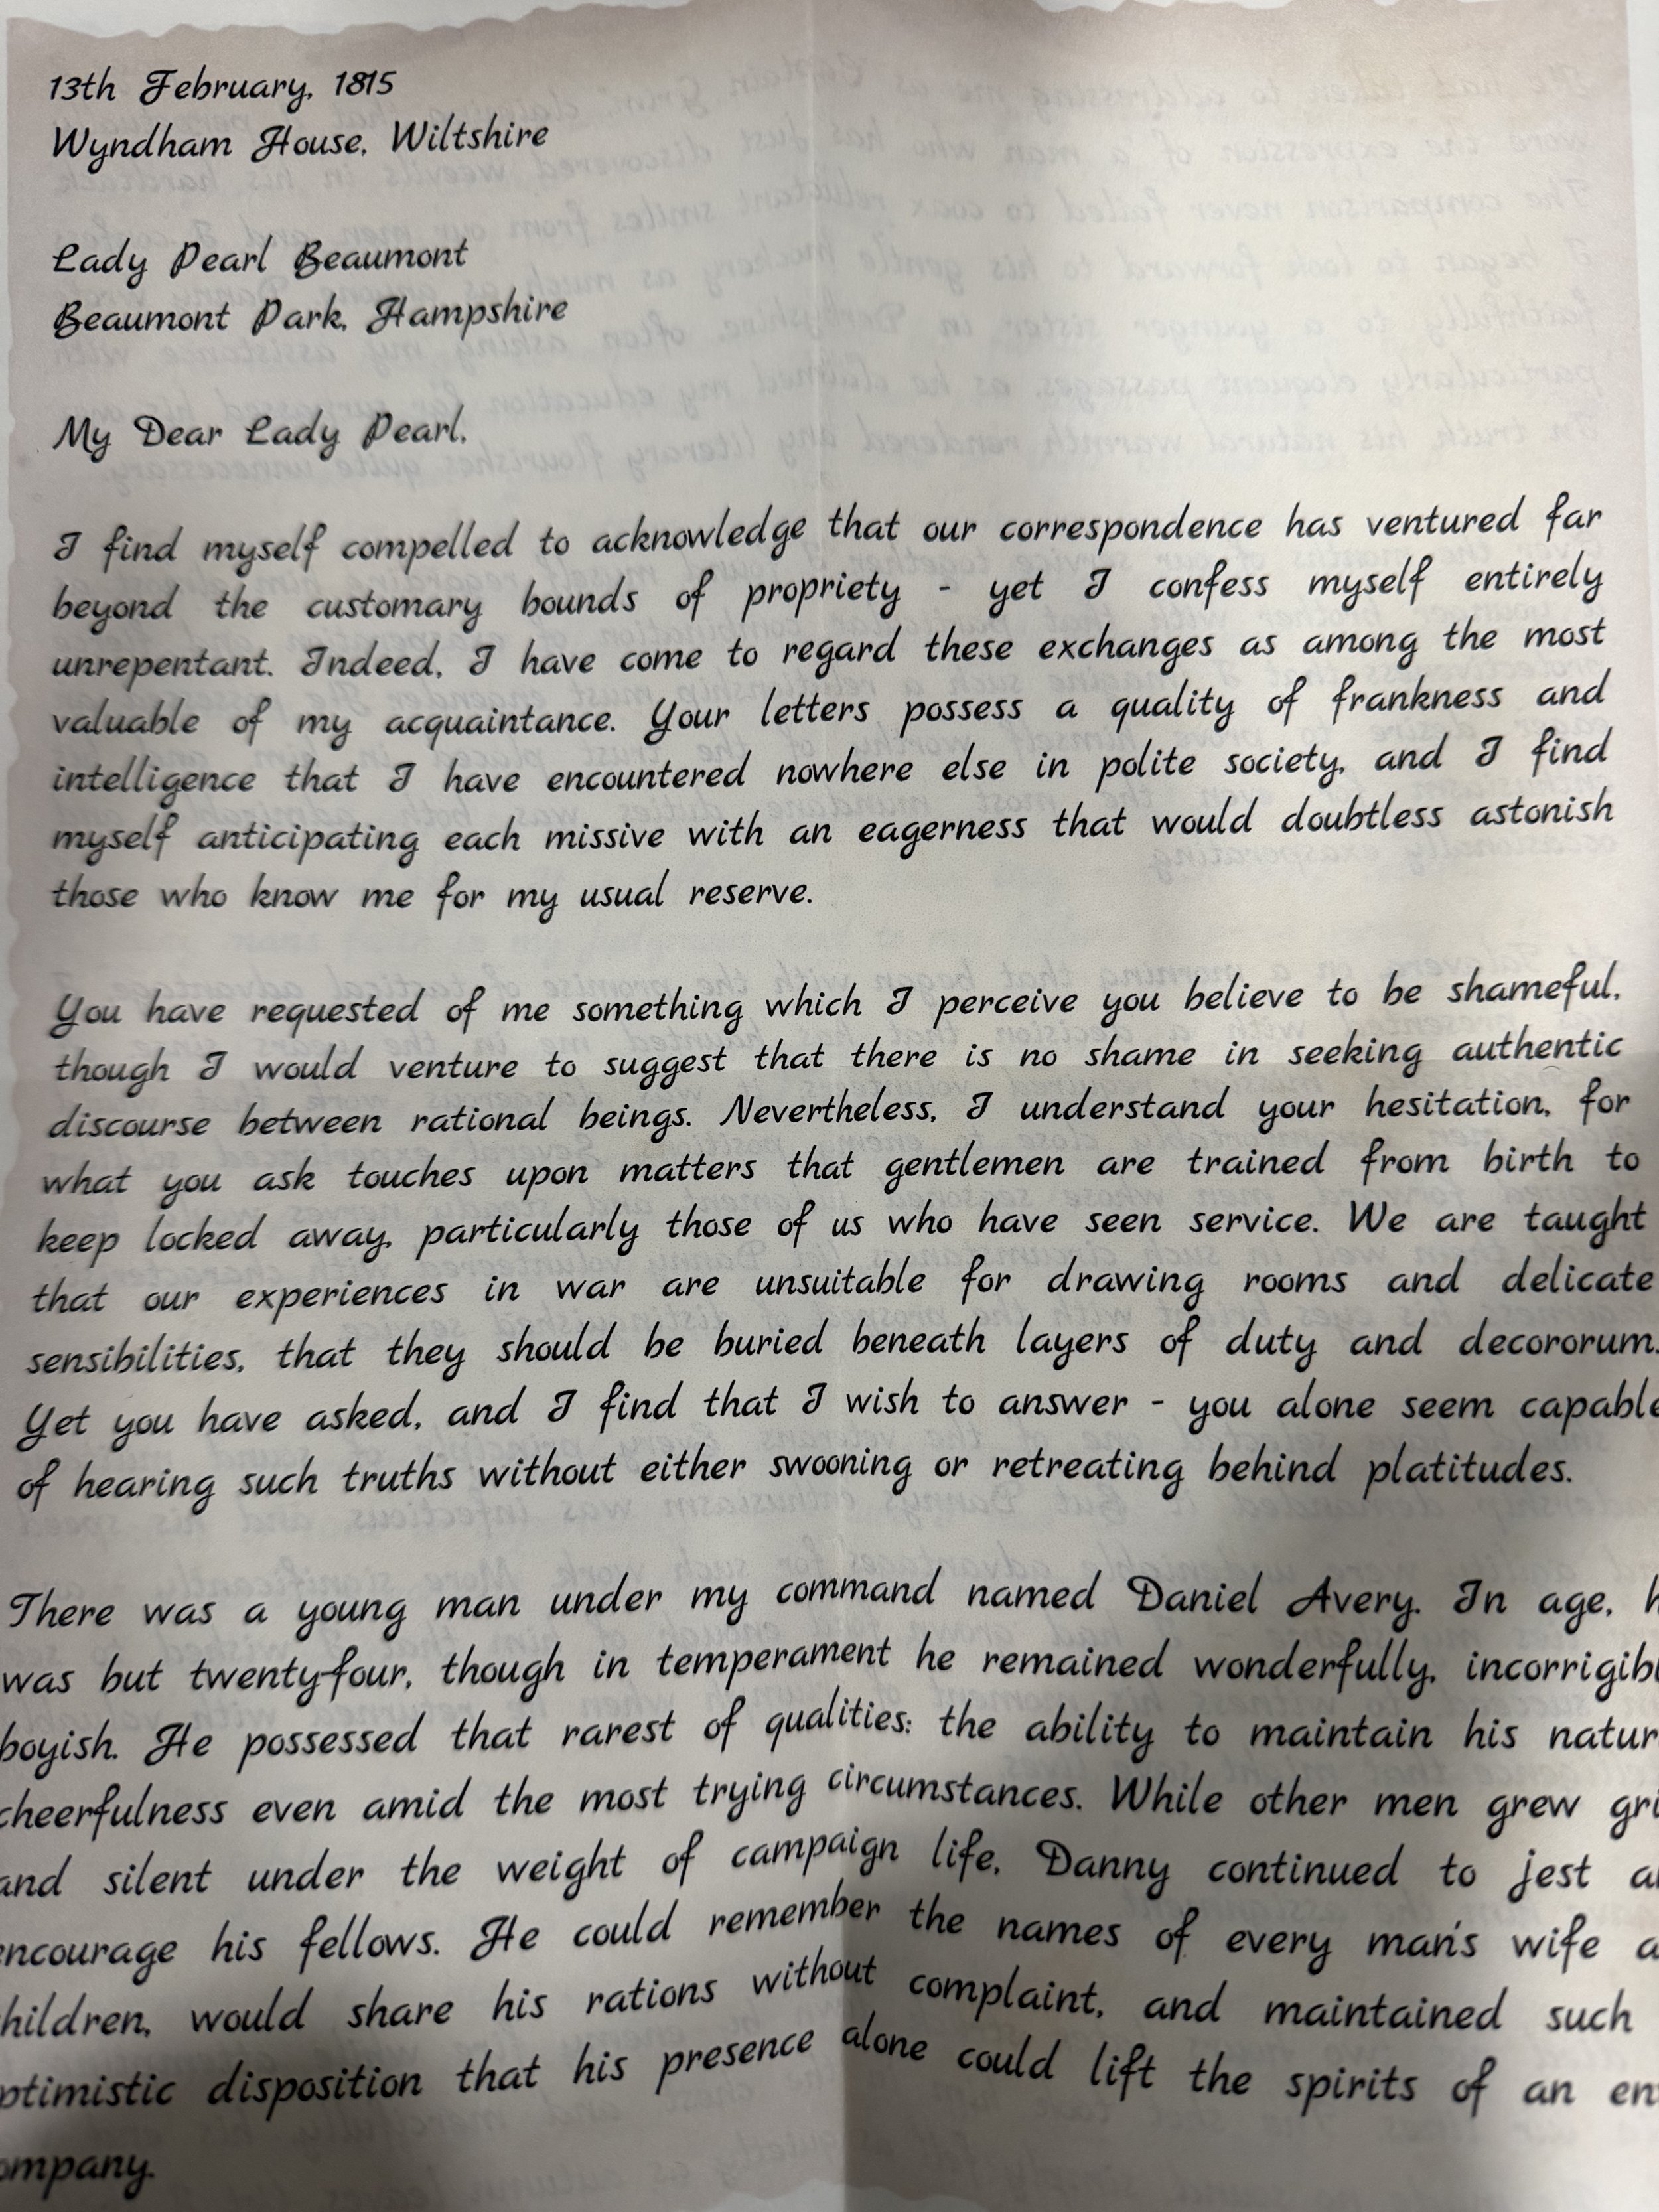 13th February, 1815
Wyndham House, Wiltshire
Lady Pearl Beaumont
Beaumont Park, Hampshire
My Dear Lady Pearl,
I find myself compelled to acknowledge that our correspondence has ventured far
beyond the customary bounds of propriety - yet I confess myself entirely
unrepentant. Indeed, I have come to regard these exchanges as among the most
valuable of my acquaintance. Your letters possess a quality of frankness and
intelligence that I have encountered nowhere else in polite society, and I find
myself anticipating each missive with an eagerness that would doubtless astonish
those who know me for my usual reserve.
You have requested of me something which I perceive you believe to be shameful,
though I would venture to suggest that there is no shame in seeking authentic
discourse between rational beings. Nevertheless, I understand your hesitation, for
what you ask touches upon matters that gentlemen are trained from birth to
keep locked away, particularly those of us who have seen service. We are taught
that our experiences in war are unsuitable for drawing rooms and delicate
sensibilities, that they should be buried beneath layers of duty and decororum.
Yet you have asked, and I find that I wish to answer - you alone seem capable
of hearing such truths without either swooning or retreating behind platitudes.
There was a young man under my command named Daniel Avery. In age,
was but twenty-four, though in temperament he remained wonderfully,
boyish. He possessed that rarest of qualities: the ability to maintain his
cheerfulness even amid the most trying circumstances. While other men grew
and silent under the weight of campaign life, Danny continued to jest
encourage his fellows. He could remember the names of every man's wife
children, would share his rations without complaint, and maintained such
optimistic disposition that his presence alone could lift the spirits of an
company.